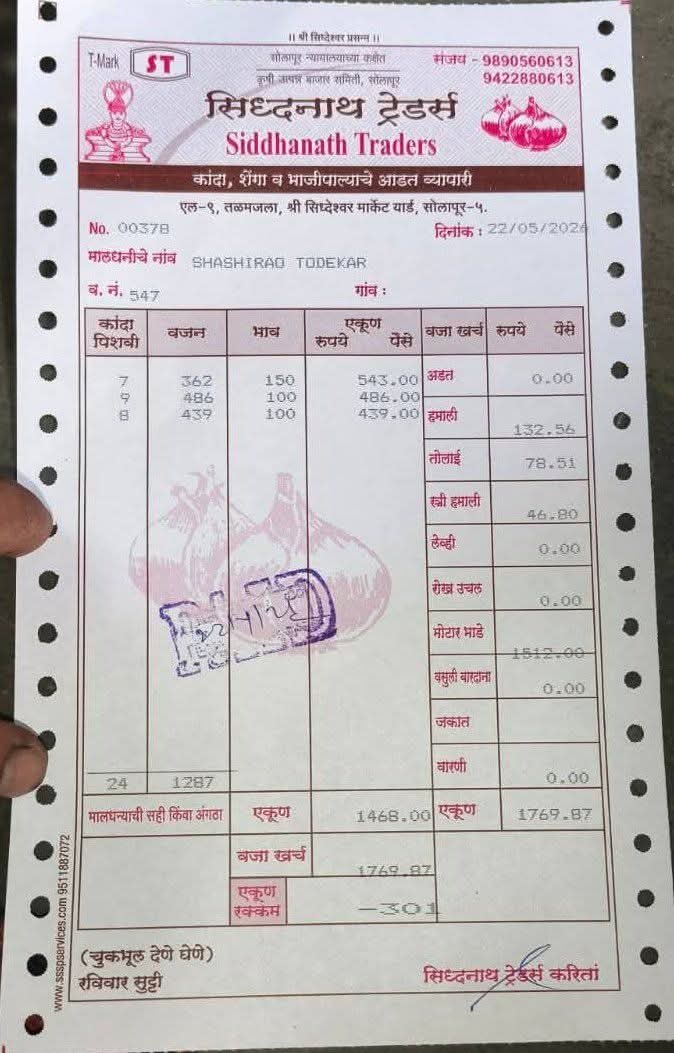 ।। श्री सिध्देश्वर प्रसन्न ।।
T-Mark ST
सोलापूर न्यायालयाच्या कक्षेत
कृषी उत्पन्न बाजार समिती, सोलापूर
संजय - 9890560613
9422880613
सिध्दनाथ ट्रेडर्स
Siddhanath Traders
कांदा, शेंगा व भाजीपाल्याचे आडत व्यापारी
एल-९, तळमजला, श्री सिध्देश्वर मार्केट यार्ड, सोलापूर-५.
No. 00378 दिनांक : 22/05/2026
मालधनीचे नांव SHASHIRAO TODEKAR
व. नं. 547 गांव :
कांदा पिशवी वजन भाव एकूण रुपये पैसे वजा खर्च रुपये पैसे
7 362 150 543.00 अडत 0.00
9 486 100 486.00
8 439 100 439.00 हमाली 132.56
तोलाई 78.51
स्त्री हमाली 46.80
लेव्ही 0.00
रोख उचल 0.00
मोटार भाडे 1512.00
वसुली बारदाना 0.00
जकात
वारणी 0.00
24 1287
मालधन्याची सही किंवा अंगठा एकूण 1468.00 एकूण 1769.87
वजा खर्च 1769.87
एकूण रक्कम -301
(चुकभूल देणे घेणे)
रविवार सुट्टी
सिध्दनाथ ट्रेडर्स करितां
www.ssspservices.com 9511887072